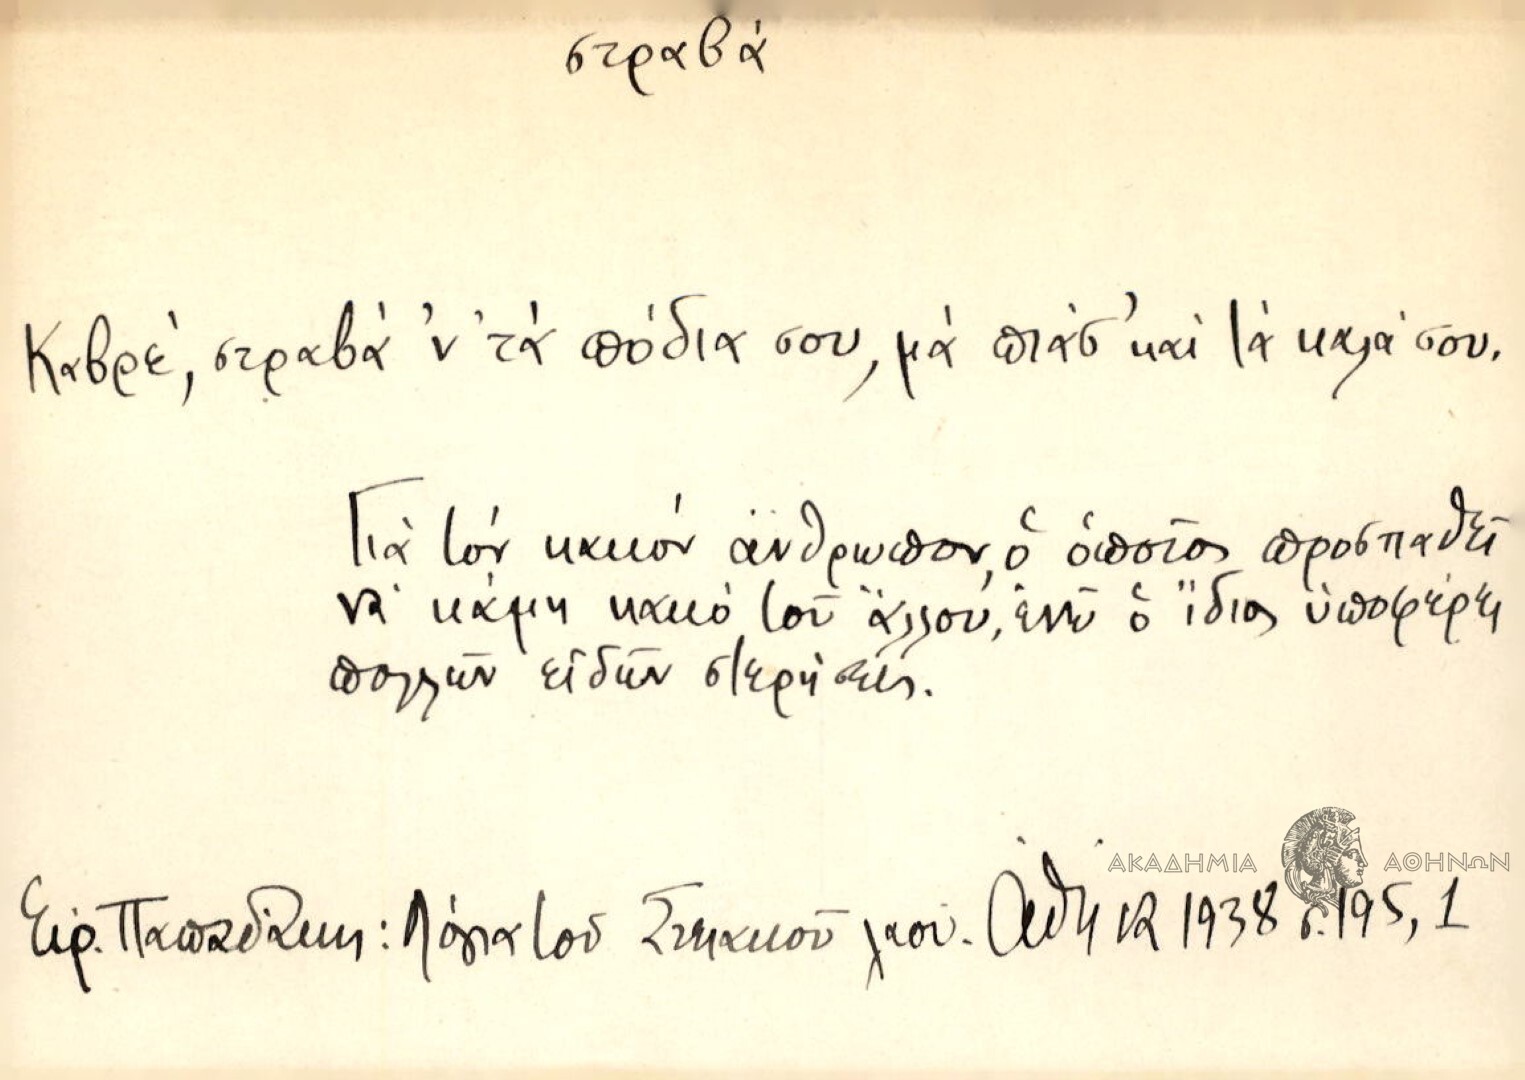 στραβά
Καβρέ, στραβά 'ν' τά πόδια σου, μά πιάσ' καί τά καλά σου.
Γιά τόν κακόν άνθρωπον, ὁ ὁποῖος προσπαθεῖ
νά κάμη κακό τοῦ ἄλλου, ἐνῶ ὁ ἴδιος ὑποφέρει
πολλῶν εἰδῶν στερήσεις.
ΑΚΑΔΗΜΙΑ ΑΘΗΝΩΝ
Εἰρ. Παπαδάκη: Λόγια τοῦ Στειακοῦ λαοῦ. Ἀθήνα 1938 σ. 195, 1